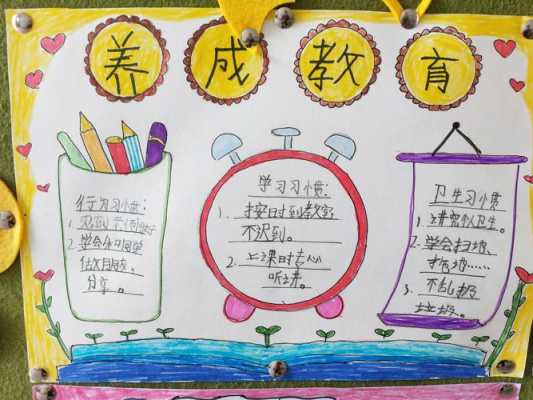 养成教育
行为习惯:
1. 见到老师问好
2. 学会和同学
做朋友,
分享。
学习习惯:
1. 按时到教室
不迟到。
2. 上课时专心
听讲。
卫生习惯
1. 讲究个人卫生。
2. 学会扫地、
拖地……
3. 不乱扔
垃圾。